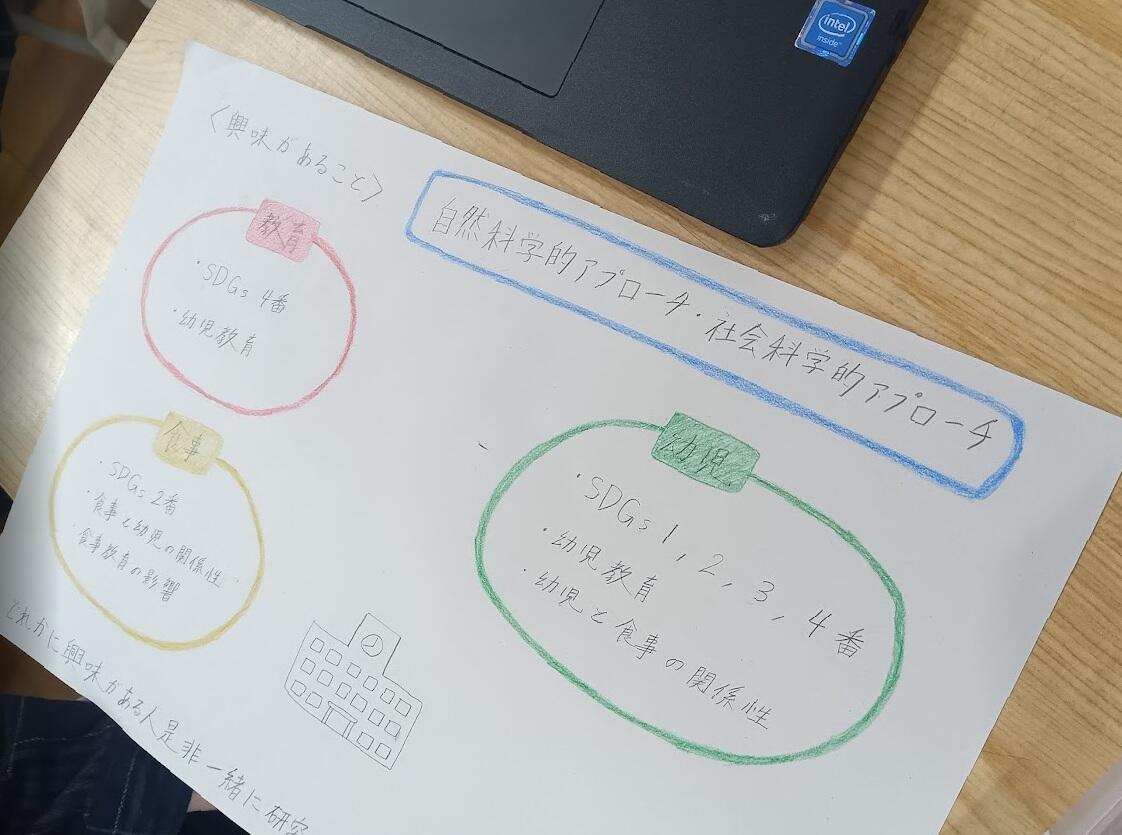 〈興味があること〉
自然科学的アプローチ・社会科学的アプローチ
教育
・SDGs 4番
・幼児教育
食事
・SDGs 2番
・食事と幼児の関係性
・食事教育の影響
幼児
・SDGs 1, 2, 3, 4番
・幼児教育
・幼児と食事の関係性
どれかに興味がある人是非一緒に研究
intel
inside™